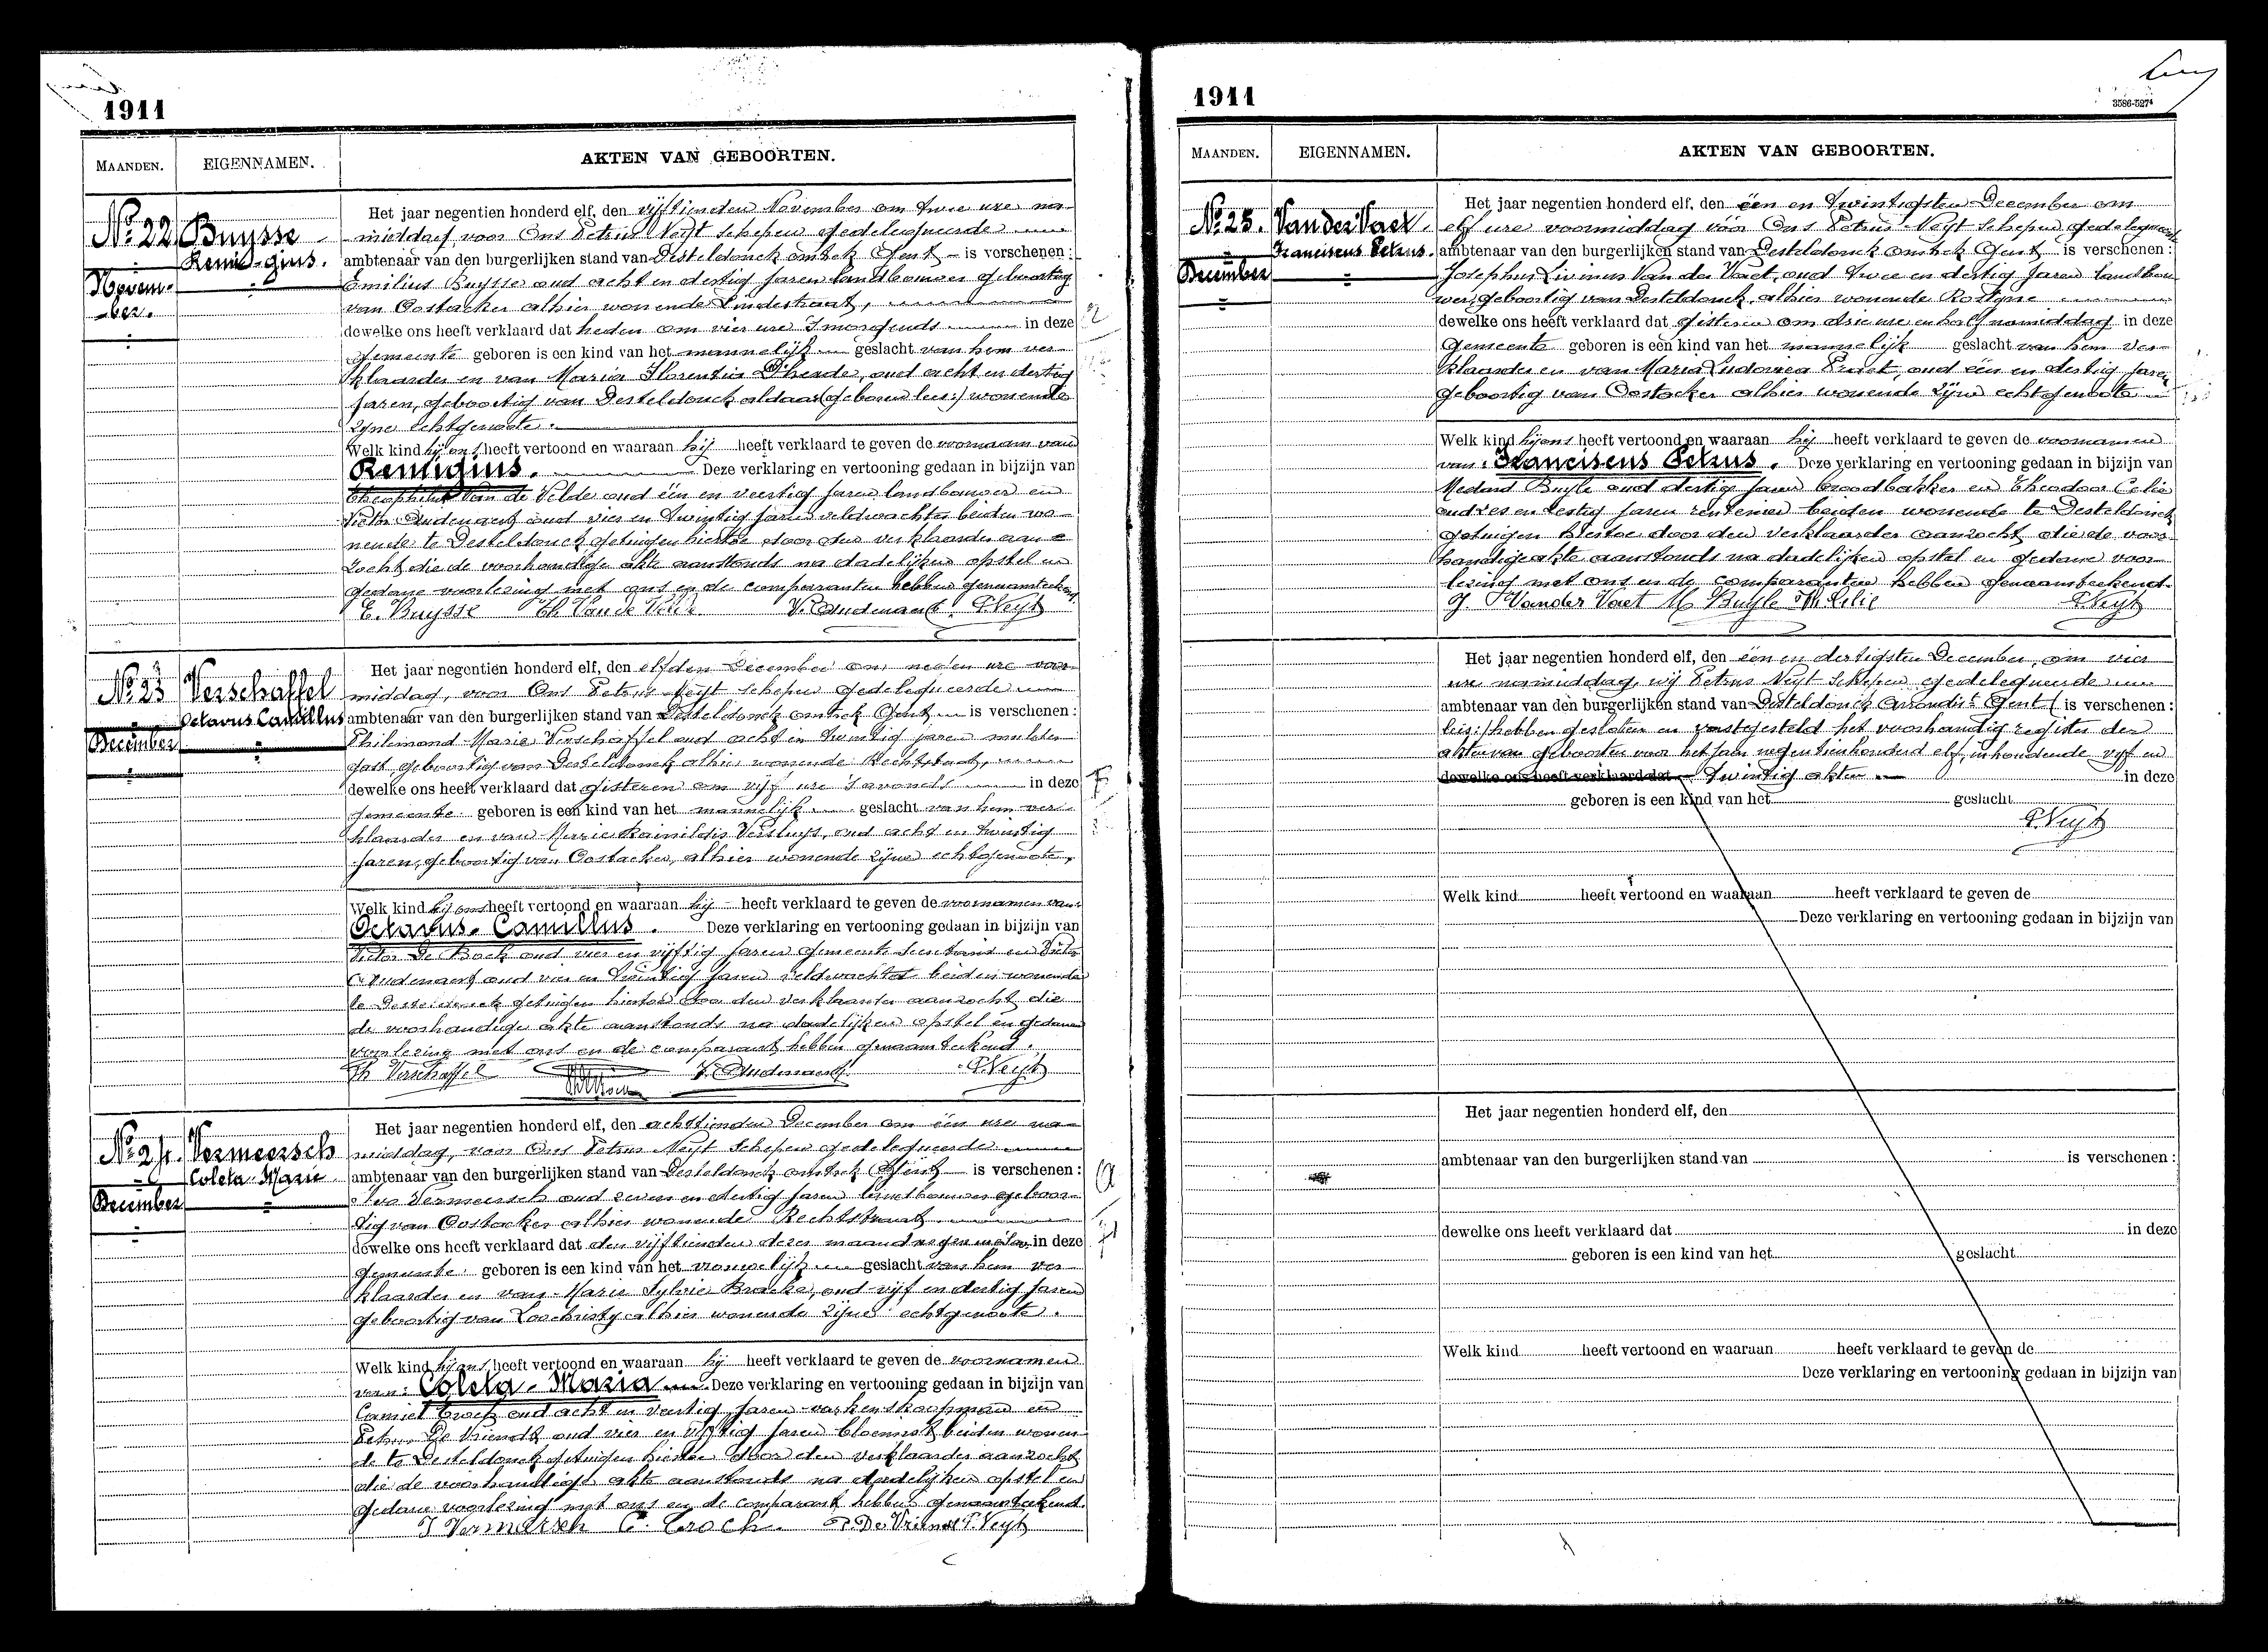 1911
MAANDEN.
EIGENNAMEN.
AKTEN VAN GEBOORTEN.
No. 22
Buysse
Remigius.
Novem-
ber.
Het jaar negentien honderd elf, den vijftienden November om twee ure na-
middag, voor Ons Petrus Neyt schepen gedelegueerde
ambtenaar van den burgerlijken stand van Desteldonck omtrek Gent is verschenen:
Emilius Buysse oud acht en dertig jaren landbouwer geboortig
van Oostacker alhier wonende Lindestraat,
dewelke ons heeft verklaard dat heden om vier ure 's morgends in deze
gemeente geboren is een kind van het mannelijk geslacht van hem ver-
klaarder en van Maria Florentia D'heade, oud acht en dertig
jaren, geboortig van Desteldonck aldaar (geboren lees:) wonende
zijne echtgenoote.
Welk kind hij ons heeft vertoond en waaraan hij heeft verklaard te geven de voornaam van
Remigius. Deze verklaring en vertooning gedaan in bijzijn van
Theophiel Van de Velde oud één en veertig jaren landbouwer en
Victor Audenaert oud vier en twintig jaren veldwachter beiden wo-
nende te Desteldonck getuigen hiertoe door den verklaarder aan-
zocht die de voorhandige akte aanstonds na dadelijken opstel en
gedane voorlezing met ons en de comparanten hebben genaamteekend.
E. Buysse Th Van de Velde V. Audenaert P. Neyt
No. 23
Verschaffel
Octavus Camillus
December
Het jaar negentien honderd elf, den elfden December om negen ure voor-
middag, voor Ons Petrus Neyt schepen gedelegueerde
ambtenaar van den burgerlijken stand van Desteldonck omtrek Gent is verschenen:
Philemond Marie Verschaffel oud acht en twintig jaren mulder-
gast geboortig van Desteldonck alhier wonende Rechtstraat,
dewelke ons heeft verklaard dat gisteren om vijf ure 's avonds in deze
gemeente geboren is een kind van het mannelijk geslacht van hem ver-
klaarder en van Marie Rainildis Versluys, oud acht en twintig
jaren, geboortig van Oostacker, alhier wonende zijne echtgenoote,
Welk kind hij ons heeft vertoond en waaraan hij heeft verklaard te geven de voornamen van
Octavus-Camillus. Deze verklaring en vertooning gedaan in bijzijn van
Victor De Bock oud vier en vijftig jaren gemeente secretaris en Victor
Audenaert oud vier en twintig jaren veldwachter beiden wonende
te Desteldonck getuigen hiertoe door den verklaarder aanzocht die
de voorhandige akte aanstonds na dadelijken opstel en gedanen
voorlezing met ons en de comparant hebben genaamteekend.
Ph Verschaffel V. Audenaert P. Neyt
No. 24.
Vermeersch
Coleta Marie
December
Het jaar negentien honderd elf, den achttienden December om één ure na-
middag, voor Ons Petrus Neyt schepen gedelegueerde
ambtenaar van den burgerlijken stand van Desteldonck omtrek Gent is verschenen:
Ivo Vermeersch oud zeven en dertig jaren landbouwer geboor-
tig van Oostacker alhier wonende Rechtstraat
dewelke ons heeft verklaard dat den vijftienden dezer maand in deze
gemeente geboren is een kind van het vrouwelijk geslacht van hem ver-
klaarder en van Marie Sylvie Bracke, oud vijf en dertig jaren
geboortig van Loochristy alhier wonende zijne echtgenoote.
Welk kind hij ons heeft vertoond en waaraan hij heeft verklaard te geven de voornamen
van: Coleta-Maria Deze verklaring en vertooning gedaan in bijzijn van
Camiel Crock oud acht en veertig jaren varkenskoopman en
Petrus De Vriendt oud vier en vijftig jaren bloemist beiden wonen-
de te Desteldonck getuigen hiertoe door den verklaarder aanzocht
die de voorhandige akte aanstonds na dadelijken opstel en
gedane voorlezing met ons en de comparant hebben genaamteekend.
I Vermeersch C. Crock P. De Vriendt P. Neyt
1911
3586-527⁴
MAANDEN.
EIGENNAMEN.
AKTEN VAN GEBOORTEN.
No. 25.
Van der Vaet.
Franciscus Petrus.
December
Het jaar negentien honderd elf, den één en twintigsten December om
elf ure voormiddag vóór Ons Petrus Neyt schepen gedelegueerde
ambtenaar van den burgerlijken stand van Desteldonck omtrek Gent is verschenen:
Josephus Livinus Van der Vaet, oud twee en dertig jaren landbou-
wer, geboortig van Desteldonck, alhier wonende Rostyne
dewelke ons heeft verklaard dat gisteren om drie ure en half namiddag in deze
gemeente geboren is een kind van het mannelijk geslacht van hem ver-
klaarder en van Maria Ludovica Praet, oud één en dertig jaren
geboortig van Oostacker alhier wonende zijne echtgenoote
Welk kind hij ons heeft vertoond en waaraan hij heeft verklaard te geven de voornamen
van: Franciscus Petrus. Deze verklaring en vertooning gedaan in bijzijn van
Medard Buyle oud dertig jaren broodbakker en Theodoor Celie
oud zes en zestig jaren rentenier beiden wonende te Desteldonck
getuigen hiertoe door den verklaarder aanzocht die de voor-
handige akte aanstonds na dadelijken opstel en gedane voor-
lezing met ons en de comparanten hebben genaamteekend.
J. Vander Vaet M Buyle Th. Celie P. Neyt
Het jaar negentien honderd elf, den één en dertigsten December, om vier
ure namiddag, wij Petrus Neyt Schepen gedelegueerde
ambtenaar van den burgerlijken stand van Desteldonck Arrondist Gent ( is verschenen:
lees:) hebben gesloten en vastgesteld het voorhandig register der
akten van geboorten voor het jaar negentienhonderd elf, inhoudende vijf en
dewelke ons heeft verklaard dat twintig akten in deze
geboren is een kind van het geslacht
P. Neyt
Welk kind heeft vertoond en waaraan heeft verklaard te geven de
Deze verklaring en vertooning gedaan in bijzijn van
Het jaar negentien honderd elf, den
ambtenaar van den burgerlijken stand van is verschenen:
dewelke ons heeft verklaard dat in deze
geboren is een kind van het geslacht
Welk kind heeft vertoond en waaraan heeft verklaard te geven de
Deze verklaring en vertooning gedaan in bijzijn van